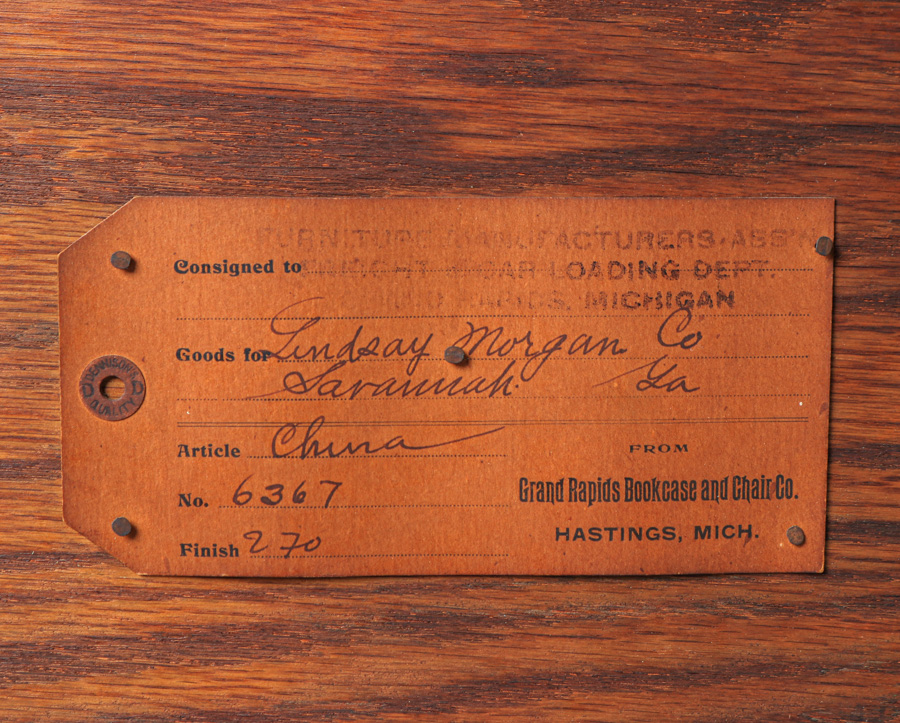 FURNITURE MANUFACTURERS ASS'N
Consigned to FREIGHT CAR LOADING DEPT.
GRAND RAPIDS, MICHIGAN
Goods for Lindsay Morgan Co
Savannah Ga
DENNISON'S
QUALITY
Article China
No. 6367
Finish 270
FROM
Grand Rapids Bookcase and Chair Co.
HASTINGS, MICH.